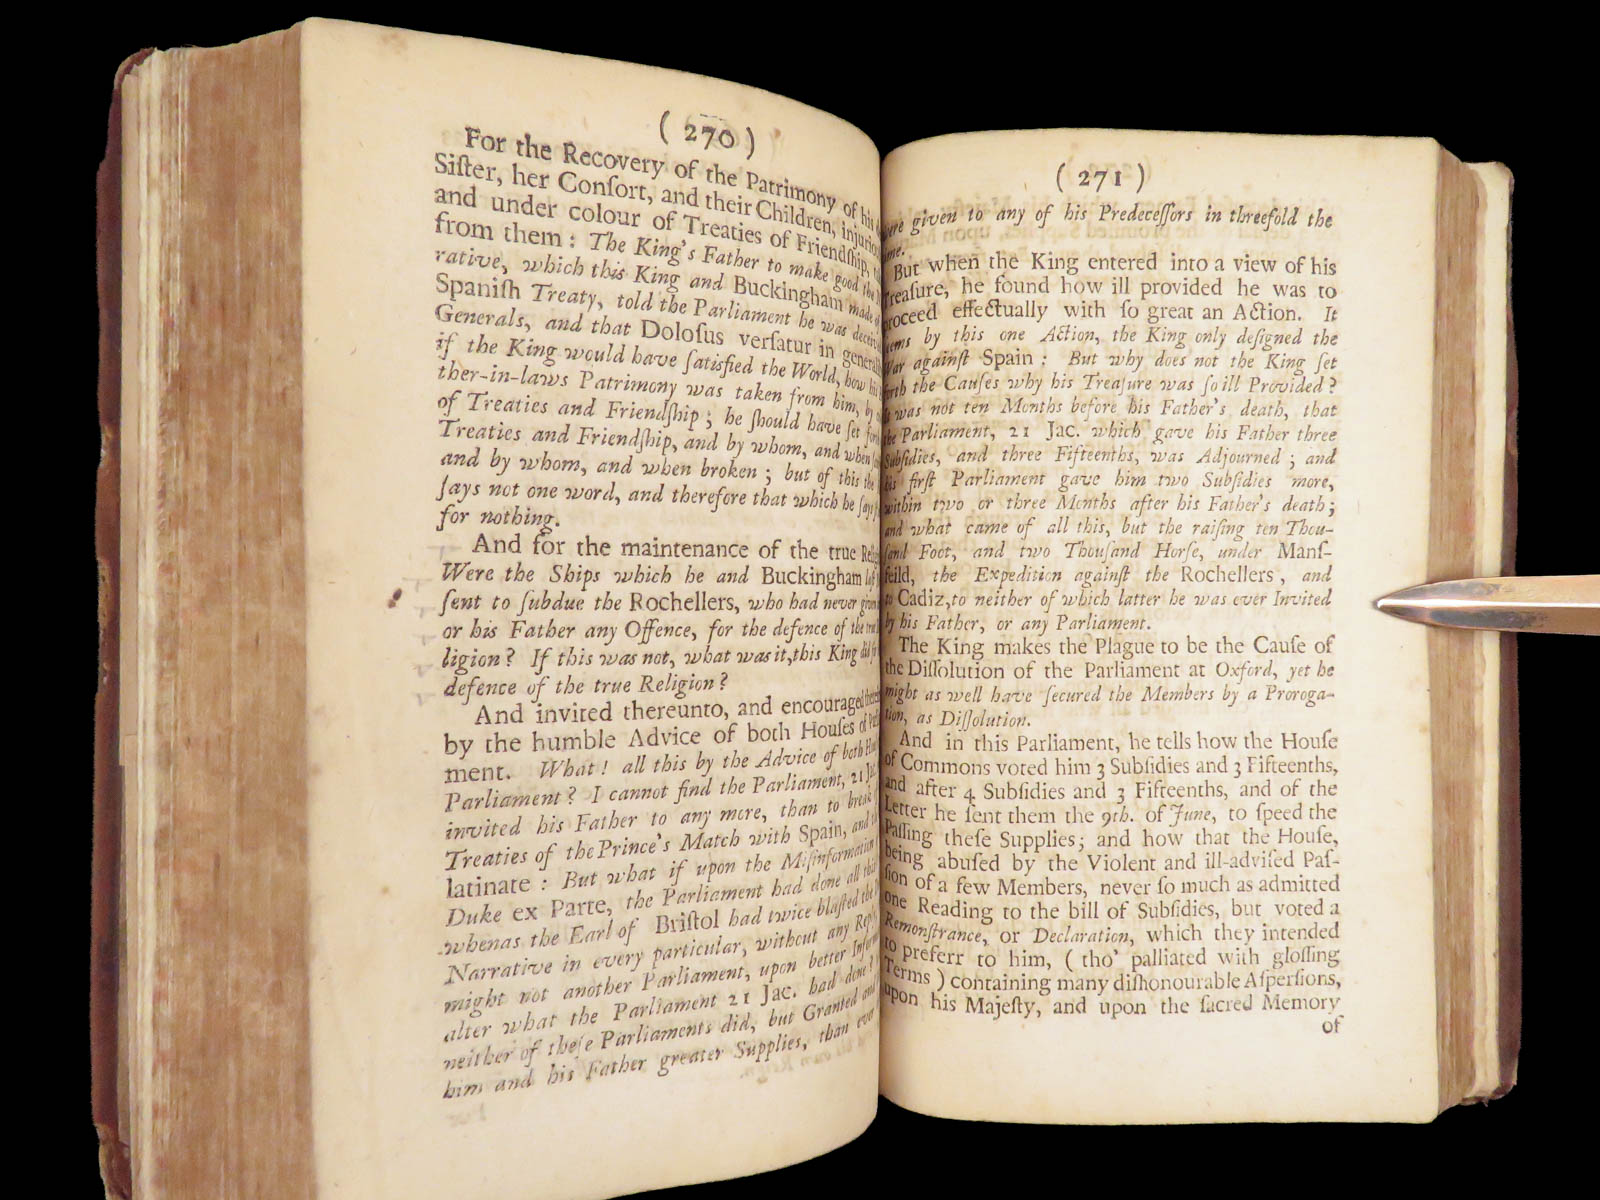 ( 270 )
For the Recovery of the Patrimony of his
Siſter, her Conſort, and their Children, injuriou
and under colour of Treaties of Friendſhip,
from them : The King's Father to make good the
rative, which this King and Buckingham made of
Spaniſh Treaty, told the Parliament he was deceiv
Generals, and that Doloſus verſatur in generali
if the King would have ſatisfied the World, how his
ther-in-laws Patrimony was taken from him, by
of Treaties and Friendſhip ; he ſhould have ſet forth
Treaties and Friendſhip, and by whom, and when
and by whom, and when broken ; but of this the
ſays not one word, and therefore that which he ſays
for nothing.
And for the maintenance of the true Relig
Were the Ships which he and Buckingham
ſent to ſubdue the Rochellers, who had never given
or his Father any Offence, for the defence of the true
ligion ? If this was not, what was it, this King did
defence of the true Religion ?
And invited thereunto, and encouraged
by the humble Advice of both Houſes of
ment. What ! all this by the Advice of both
Parliament ? I cannot find the Parliament, 21 Jac.
invited his Father to any more, than to break
Treaties of the Prince's Match with Spain, and
latinate : But what if upon the Miſinformation
Duke ex Parte, the Parliament had done all this
whenas the Earl of Briſtol had twice blaſted the
Narrative in every particular, without any
might not another Parliament, upon better
alter what the Parliament 21 Jac. had done ?
neither of theſe Parliaments did, but Granted
him and his Father greater Supplies, than ever
( 271 )
were given to any of his Predeceſſors in threefold the
time.
But when the King entered into a view of his
Treaſure, he found how ill provided he was to
proceed effectually with ſo great an Action. It
ſeems by this one Action, the King only deſigned the
War againſt Spain : But why does not the King ſet
forth the Cauſes why his Treaſure was ſo ill Provided ?
was not ten Months before his Father's death, that
the Parliament, 21 Jac. which gave his Father three
Subſidies, and three Fifteenths, was Adjourned ; and
his firſt Parliament gave him two Subſidies more,
within two or three Months after his Father's death ;
and what came of all this, but the raiſing ten Thou-
ſand Foot, and two Thouſand Horſe, under Manſ-
feild, the Expedition againſt the Rochellers, and
to Cadiz, to neither of which latter he was ever Invited
by his Father, or any Parliament.
The King makes the Plague to be the Cauſe of
the Diſſolution of the Parliament at Oxford, yet he
might as well have ſecured the Members by a Proroga-
tion, as Diſſolution.
And in this Parliament, he tells how the Houſe
of Commons voted him 3 Subſidies and 3 Fifteenths,
and after 4 Subſidies and 3 Fifteenths, and of the
Letter he ſent them the 9th. of June, to ſpeed the
Paſſing theſe Supplies; and how that the Houſe,
being abuſed by the Violent and ill-adviſed Paſ-
ſion of a few Members, never ſo much as admitted
one Reading to the bill of Subſidies, but voted a
Remonſtrance, or Declaration, which they intended
to preferr to him, ( tho' palliated with gloſſing
Terms ) containing many diſhonourable Aſperſions,
upon his Majeſty, and upon the ſacred Memory
of